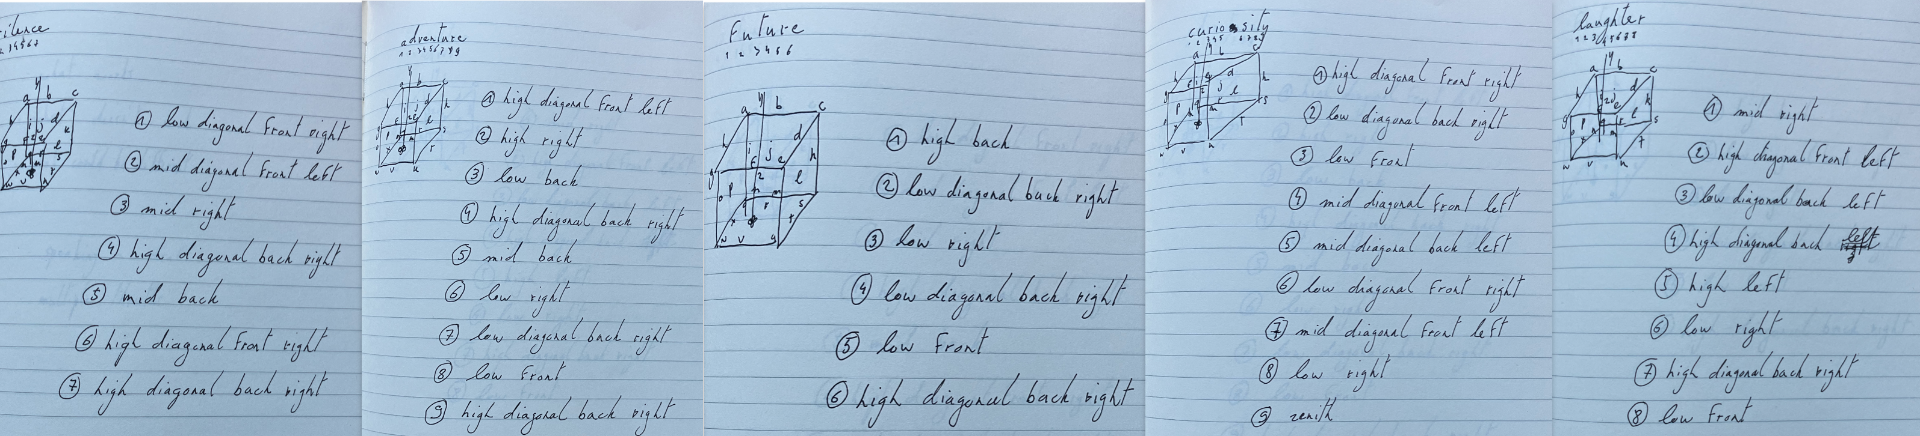 silence
① low diagonal front right
② mid diagonal front left
③ mid right
④ high diagonal back right
⑤ mid back
⑥ high diagonal front right
⑦ high diagonal back right
adventure
1 2 3 4 5 6 7 8 9
① high diagonal front left
② high right
③ low back
④ high diagonal back right
⑤ mid back
⑥ low right
⑦ low diagonal back right
⑧ low front
⑨ high diagonal back right
Future
1 2 3 4 5 6
① high back
② low diagonal back right
③ low right
④ low diagonal back right
⑤ low front
⑥ high diagonal back right
curiosity
① high diagonal front right
② low diagonal back right
③ low front
④ mid diagonal front left
⑤ mid diagonal back left
⑥ low diagonal front right
⑦ mid diagonal front left
⑧ low right
⑨ zenith
laughter
① mid right
② high diagonal front left
③ low diagonal back left
④ high diagonal back left
⑤ high left
⑥ low right
⑦ high diagonal back right
⑧ low front